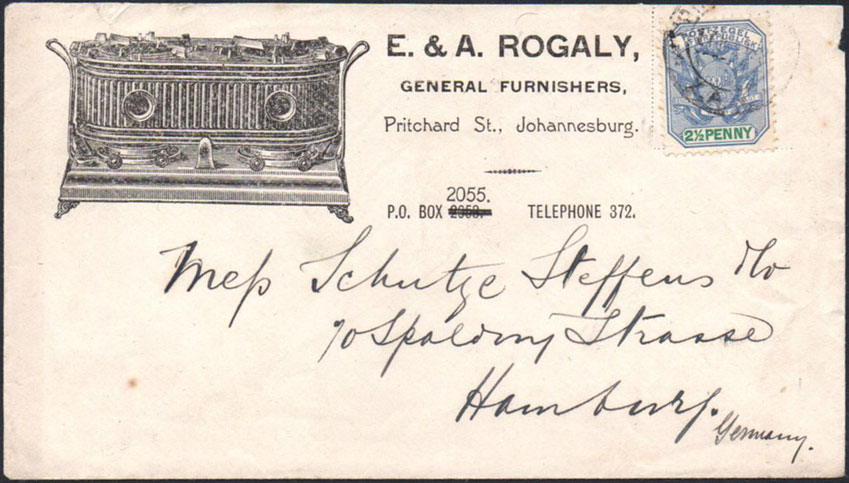 E. & A. ROGALY,
GENERAL FURNISHERS,
Pritchard St., Johannesburg.
2055.
P.O. BOX 2353. TELEPHONE 372.
POSTZEGEL
2½ PENNY
Mess Schutze Steffens & Co
70 Spalding Strasse
Hamburg.
Germany.